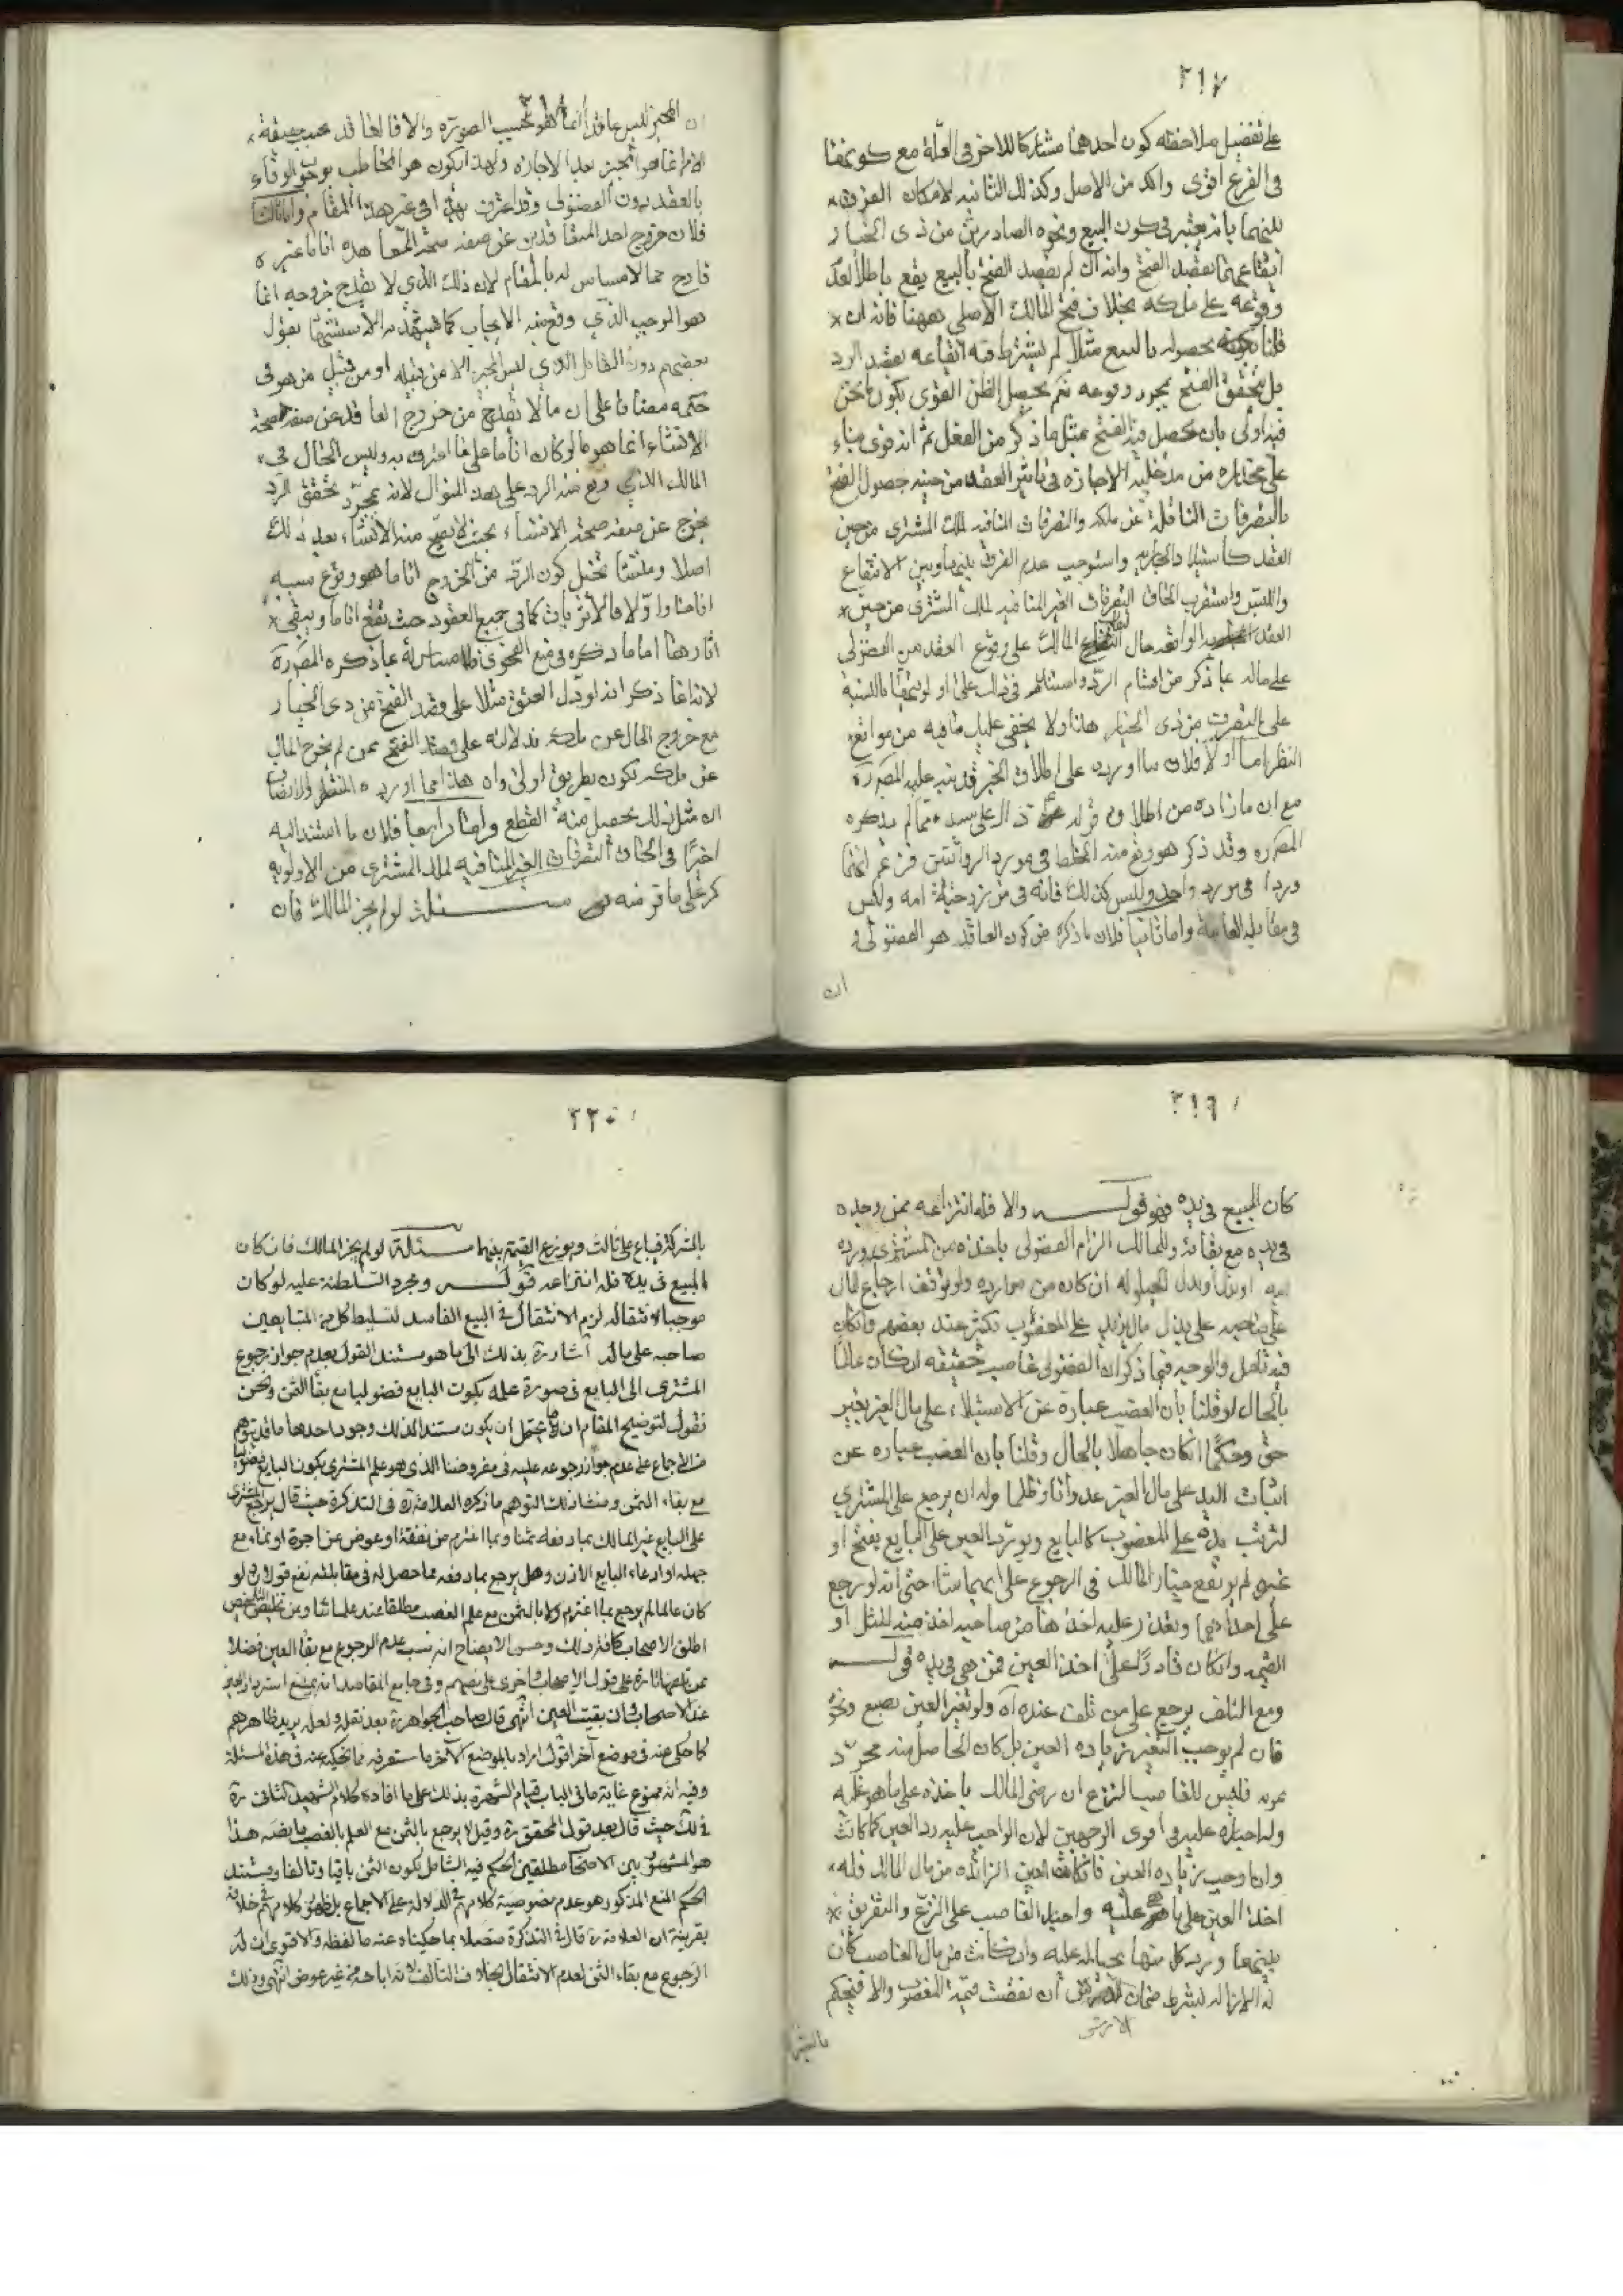 ٣١٧
على تفصيل ملاحظه كون احدهما مشاركا للاخر في العلة مع كونها
في الفرع اقوى واكد من الاصل وكذلك الثانيه لامكان الفرق
بينهما بانه يعتبر في كون البيع ونحوه الصادرين من ذى الخيار
ايقاعهما بقصد الفسخ وانه ان لم يقصد الفسخ بالبيع يقع باطلا لعدم
وقوعه على ملكه بخلاف فسخ المالك الاصلي ههنا فانه ان
قلنا بحصوله بالبيع مثلا لم يشترط فيه ايقاعه بقصد الرد
بل يتحقق الفسخ بمجرد وقوعه نعم يحصل الظن القوى بكون ما نحن
فيه اولى بان يحصل فيه الفسخ بمثل ما ذكر من الفعل ثم انه قوى بناء
على مختاره من مدخلية الاجازه في تاثير العقد من حينه حصول الفسخ
بالتصرفات الناقلة عن ملكه والتصرفات المنافيه لملك المشترى من حين
العقد كاستيلاد الجاريه واستوجب عدم الفرق بينهما وبين الانتفاع
واللبس واستقرب الحاق التصرفات الغير المنافيه لملك المشترى من حين
العقد الواقعه حال المالك على وقوع العقد من الفضولى
على ماله بما ذكر من اقسام الرد واستناده في ذلك على اولويتها بالنسبة
على التصرف من ذى الخيار هذا ولا يخفى عليك ما فيه من مواقع
النظر اما اولا فلان ما اورده على اطلاق الخبر قد نبه عليه المصره
مع ان ما زاده من اطلاق قوله ذلك على سيده مما لم يذكره
المصره وقد ذكر هو وقع منه الخلط في مورد الروايتين فزعم انهما
وردا في مورد واحد وليس كذلك فانه في من تزوج حرة امة وليس
في مقابله واما ثانيا فلان ما ذكره من كون العاقد هو الفضولى و
ان
٣١٨
ان المجيز ليس عاقدا انما هو بحسب الصورة والا فالعاقد بحسب حقيقة
الامر انما هو المجيز بعد الاجازه ولهذا يكون هو المخاطب بوجوب الوفاء
بالعقد دون الفضولى وقد اعترف بهذا في غير هذا المقام واما ثالثا
فلان خروج احد المتعاقدين عن صفه صحة المعاهده انا ما غير
قادح مما لا مساس له بالمقام لان ذلك الذي لا يقدح خروجه انما
هو الموجب الذي وقع منه الايجاب كما يشهد به الاستشهاد بقول
بعضهم دون القابل الذي ليس المجيز الا من قبيله او من قبيل من هو في
حكمه مضافا على ان ما لا يقدح من خروج العاقد عن صفة صحة
الانشاء انما هو ما لو كان انا ما على ما اعترف به وليس الحال في
المالك الذي وقع منه الرد على هذا المنوال لانه بمجرد تحقق الرد
يخرج عن صفه صحة الانشاء بحيث لا يصح منه الانشاء بعد ذلك
اصلا ومنشا تخيل كون الرد من الخروج انا ما هو وقوع سببه
انا ما اولا فالاثر ثابت كما في جميع العقود حيث تقع انا ما ويبقى
اثارهما اما ما ذكره في منع الفحوى فلا مساس له بما ذكره المصره
لانه انما ذكر انه لو دل العتق مثلا على قصد الفسخ من ذى الخيار
مع خروج المال عن ملكه فدلالته على قصد الفسخ ممن لم يخرج المال
عن ملكه تكون بطريق اولى وان هذا مما اورده المنظر والانصاف
ان مثل ذلك يحصل منه القطع واما رابعا فلان ما استند اليه
اخيرا في الحاق التصرفات الغير المنافيه لملك المشترى من الاولويه
كر على ما فر منه مسئلة لو لم يجز المالك فان
٣١٩
كان المبيع في يده فهو قوله والا فله انتزاعه ممن وجده
في يده مع بقائه وللمالك الزام الفضولى باخذه من المشترى ورده
اليه او بدله بدل الحيلوله ان كان من موارده ولو توقف ارجاع المال
على صاحبه على بذل مال يزيد على المغصوب بكثير عند بعضهم وان كان
فيه تامل والوجه فيما ذكر ان الفضولى غاصب حقيقه ان كان عالما
بالحال لو قلنا بان الغصب عبارة عن الاستيلاء على مال الغير بغير
حق وحكما ان كان جاهلا بالحال وقلنا بان الغصب عباره عن
اثبات اليد على مال الغير عدوانا وظلما وله ان يرجع على المشترى
لترتب يده على المغصوب كالبايع ويورد العين على البايع بفسخ او
غيره لم يرتفع خيار المالك في الرجوع على ايهما شاء حتى انه لو رجع
على احدهما وتعذر عليه اخذها من صاحبه اخذ منه المثل او
القيمه وان كان قادرا على اخذ العين فمن هي في يده قوله
ومع التلف يرجع على من تلف عنده آه ولو تغير العين بصبغ ونحوه
فان لم يوجب التغير زياده العين بل كان الحاصل منه مجرد
فليس للغاصب النزع ان رضى المالك ياخذه على ما هو عليه
وله اجباره عليه في اقوى الوجهين لان الواجب عليه رد العين كما كانت
وان اوجب زياده العين فان كانت العين الزائده من مال المالك فله
اخذ العين على ما هو عليه واجبار الغاصب على النزع والتفريق
بينهما ورد كل منها بحياله عليه وان كانت من مال الغاصب كان
له الازاله بشرط ضمان الارش ان نقصت قيمة المغصوب والا فيحكم
الارش
بالشركة
٣٢٠
بالشركة فيباع على ثالث ويوزع القيمة بينهما مسئلة لو لم يجز المالك فان كان
المبيع في يده فله انتزاعه قوله ومجرد السلطنة عليه لو كان
موجبا لانتقاله لزم الانتقال في البيع الفاسد لتسليط كل من المتبايعين
صاحبه على ماله اشارة بذلك الى ما هو مستند القول بعدم جواز رجوع
المشترى الى البايع في صورة علمه بكون البايع فضوليا مع بقاء الثمن ونحن
نقول لتوضيح المقام ان ما يحتمل ان يكون مستندا لذلك وجوه احدها ما قد يتوهم
من الاجماع على عدم جواز رجوعه عليه في مفروضنا الذي هو علم المشترى بكون البايع فضوليا
مع بقاء الثمن ومنشا ذلك التوهم ما ذكره العلامة ره في التذكرة حيث قال يرجع المشترى
على البايع غير المالك بما دفعه ثمنا وبما اغترم من نفقة او عوض عن اجرة او نماء مع
جهله او ادعاء البايع الاذن وهل يرجع بما دفعه مما حصل له في مقابلته نفع قولان ولو
كان عالما لم يرجع بما اغترم ولا بالثمن مع علم الغصب مطلقا عند علمائنا وعن تخليص التلخيص
اطلق الاصحاب كافة ذلك وعن الايضاح انه نسب عدم الرجوع مع بقاء العين فضلا
عن تلفها تارة على قول الاصحاب واخرى على نصهم وفى جامع المقاصد انه يمتنع استرداد العين
عند الاصحاب وان بقيت العين انتهى قال صاحب الجواهر ره بعد نقله ولعله يريد ظاهرهم
كما حكى عنه في موضع آخر اقول اراد بالموضع الآخر ما ستعرفه مما نحكيه عنه في هذه المسئلة
وفيه انه ممنوع غاية ما في الباب قيام الشهرة بذلك على ما افاده كلام الشهيد الثانى ره
في لك حيث قال بعد قول المحقق ره وقيل لا يرجع بالثمن مع العلم بالغصب ما نصه هذا
هو المشهور بين الاصحاب مطلقين الحكم فيه الشامل لكون الثمن باقيا وتالفا ومستند
الحكم المنع المذكور هو عدم مضوصية كلامهم في الدلالة على الاجماع بل ظهور كلامهم في خلافه
بقرينة ان العلامة ره قال في التذكرة متصلا بما حكيناه عنه ما لفظه والاقوى ان له
الرجوع مع بقاء الثمن لعدم الانتقال بخلاف التالف لانه اباحه من غير عوض انتهى وذلك